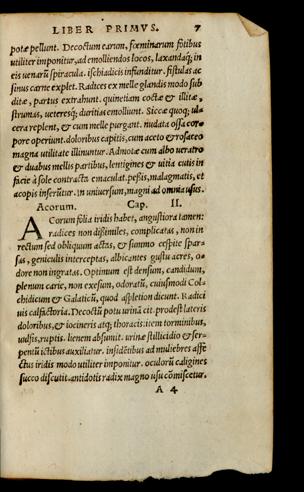 LIBER PRIMVS. 7
potæ pellunt. Decoctum earum, fœminarum fotibus
utiliter imponitur, ad emolliendos locos, laxandaq́; in
eis uenarũ spiracula. ischiadicis infunditur. fistulas ac
sinus carne explet. Radices ex melle glandis modo sub
ditæ, partus extrahunt. quinetiam coctæ & illitæ,
strumas, ueteresq́; duritias emolliunt. Siccæ quoq; ul
cera replent, & cum melle purgant. nudata ossa cor
pore operiunt. doloribus capitis, cum aceto & rosaceo
magna utilitate illinuntur. Admotæ cum albo ueratro
& duabus mellis partibus, lentigines & uitia cutis in
facie à sole contracta emaculat. pessis, malagmatis, et
acopis inserũtur. in uniuersum, magni ad omnia usus.
Acorum. Cap. II.
ACorum folia iridis habet, angustiora tamen:
radices non dißimiles, complicatas, non in
rectum sed obliquum actas, & summo cespite spar-
sas, geniculis interceptas, albicantes gustu acres, o-
dore non ingratas. Optimum est densum, candidum,
plenum carie, non exesum, odoratũ, cuiusmodi Col-
chidicum & Galaticũ, quod aspletion dicunt. Radici
uis calfactoria. Decoctũ potu urinã cit. prodest lateris
doloribus, & iocineris atq; thoracis: item torminibus,
uulsis, ruptis. lienem absumit. urinæ stillicidio & ser-
pentũ ictibus auxiliatur. insidẽtibus ad muliebres affe
ctus iridis modo utiliter imponitur. oculorũ caligines
succo discutit. antidotis radix magno usu cõmiscetur.
A 4